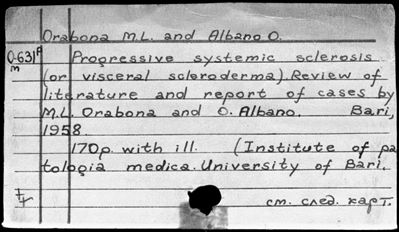 Orabona M.L. and Albano O.
O-631ª Progressive systemic sclerosis
m (or visceral scleroderma). Review of
literature and report of cases by
M.L. Orabona and O. Albano. Bari,
1958.
170p. with ill. (Institute of pa
tologia medica. University of Bari.
см. след. карт.